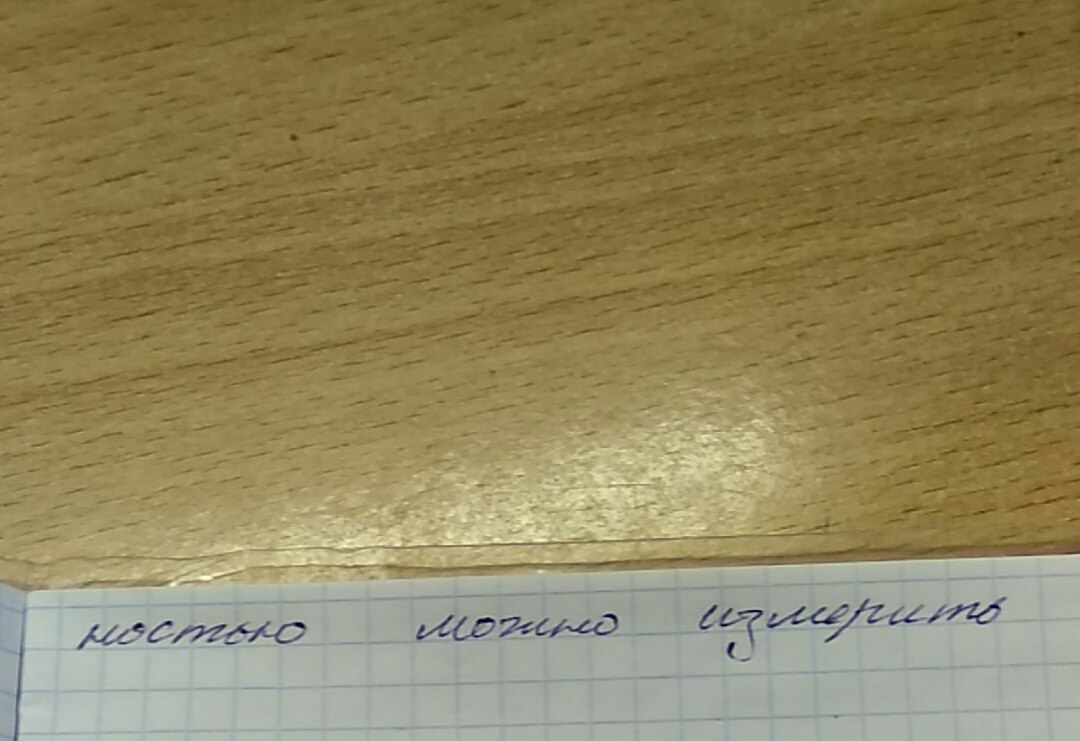 ностью можно измерить